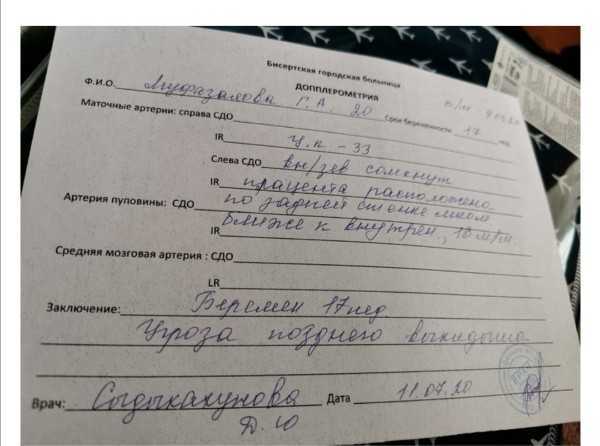 Бисертская городская больница
ДОППЛЕРОМЕТРИЯ
Ф.И.О. Муфазалова Г.А. 20 Срок беременности 17 нед
Маточные артерии: справа СДО
IR Ц.к - 33
Слева СДО вн/зев сомкнут
IR плацента расположена
Артерия пуповины: СДО по задней стенке
IR ближе к внутрен, 10 м/м.
Средняя мозговая артерия : СДО
LR
Заключение: Беремен 17 нед.
Угроза позднего выкидыша
Врач: Сыдыкакунова Дата 11.07.20
Д.Ю